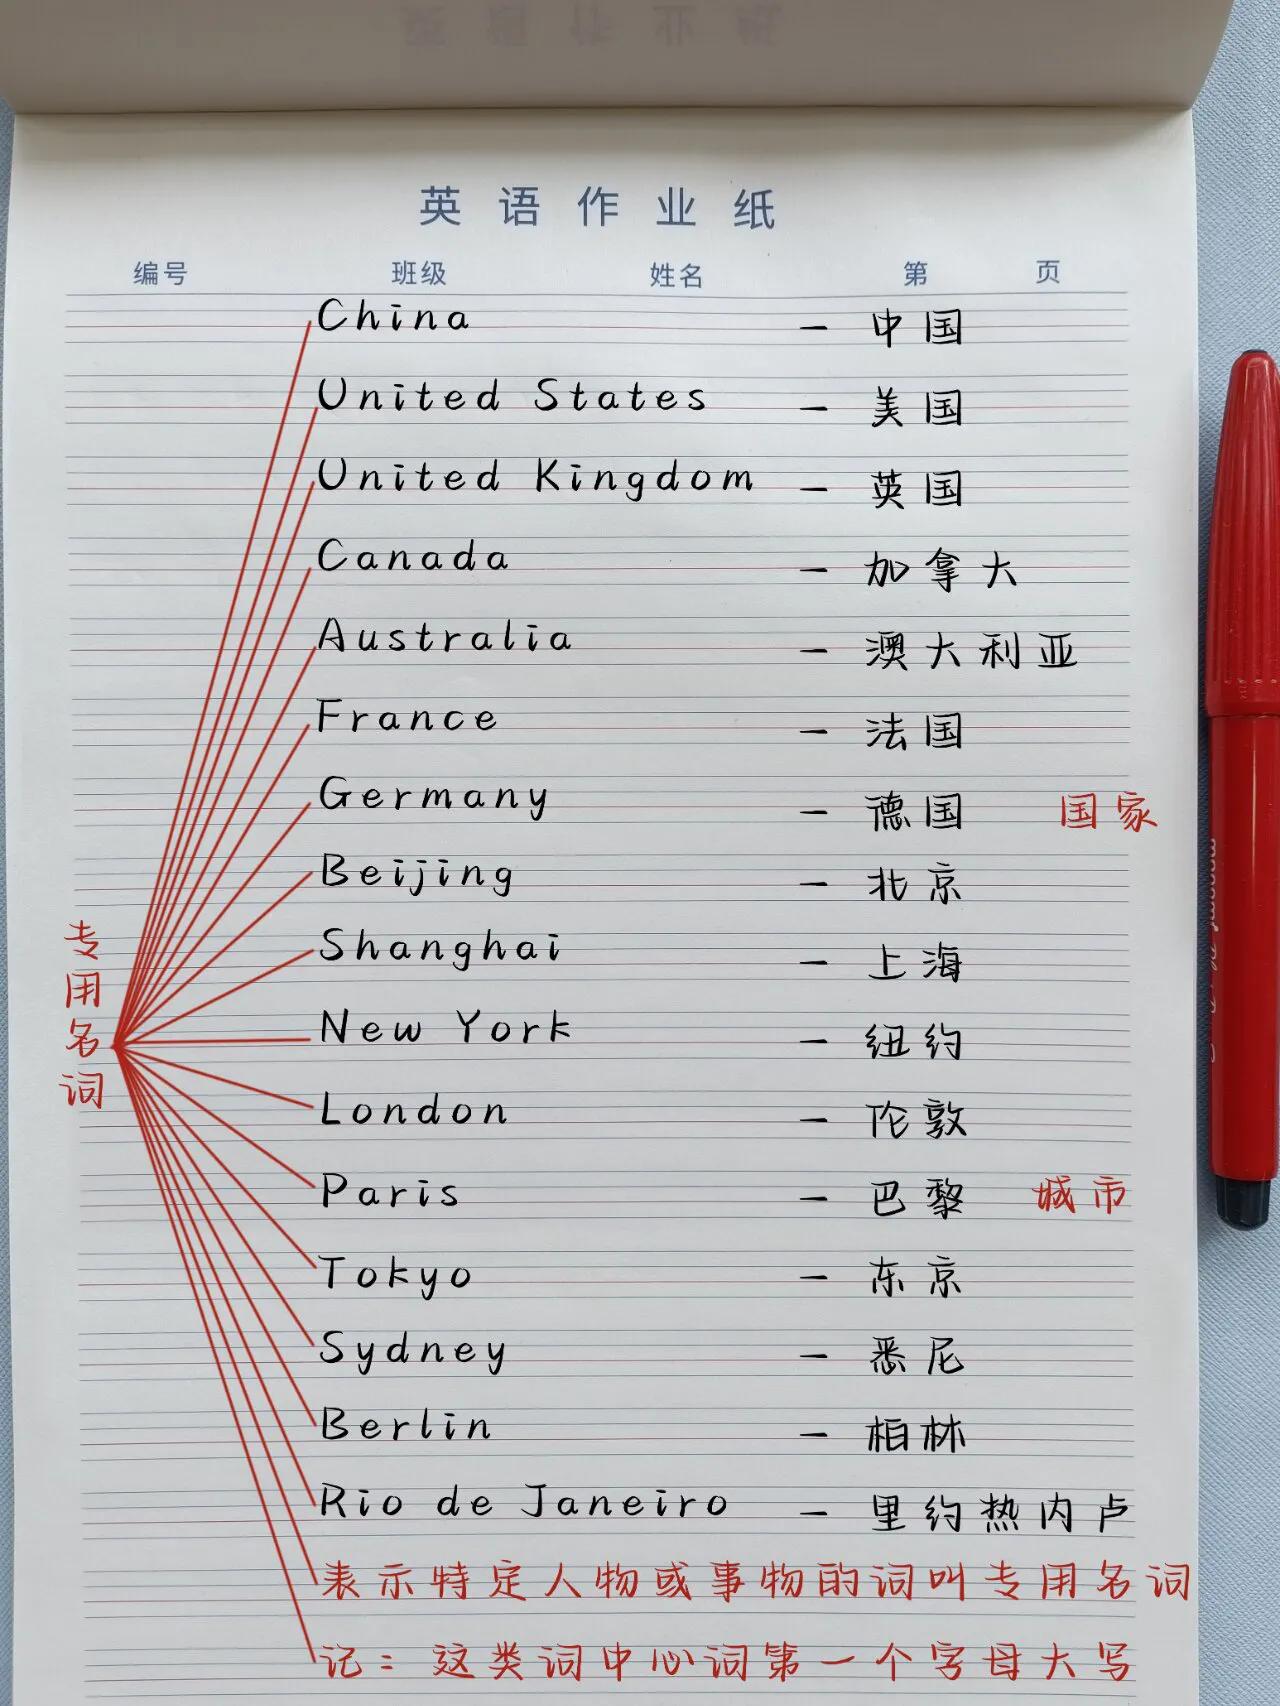 英语作业纸
编号 班级 姓名 第 页
China — 中国
United States — 美国
United Kingdom — 英国
Canada — 加拿大
Australia — 澳大利亚
France — 法国
Germany — 德国 国家
Beijing — 北京
Shanghai — 上海
专用名词
New York — 纽约
London — 伦敦
Paris — 巴黎 城市
Tokyo — 东京
Sydney — 悉尼
Berlin — 柏林
Rio de Janeiro — 里约热内卢
表示特定人物或事物的词叫专用名词
记:这类词中心词第一个字母大写